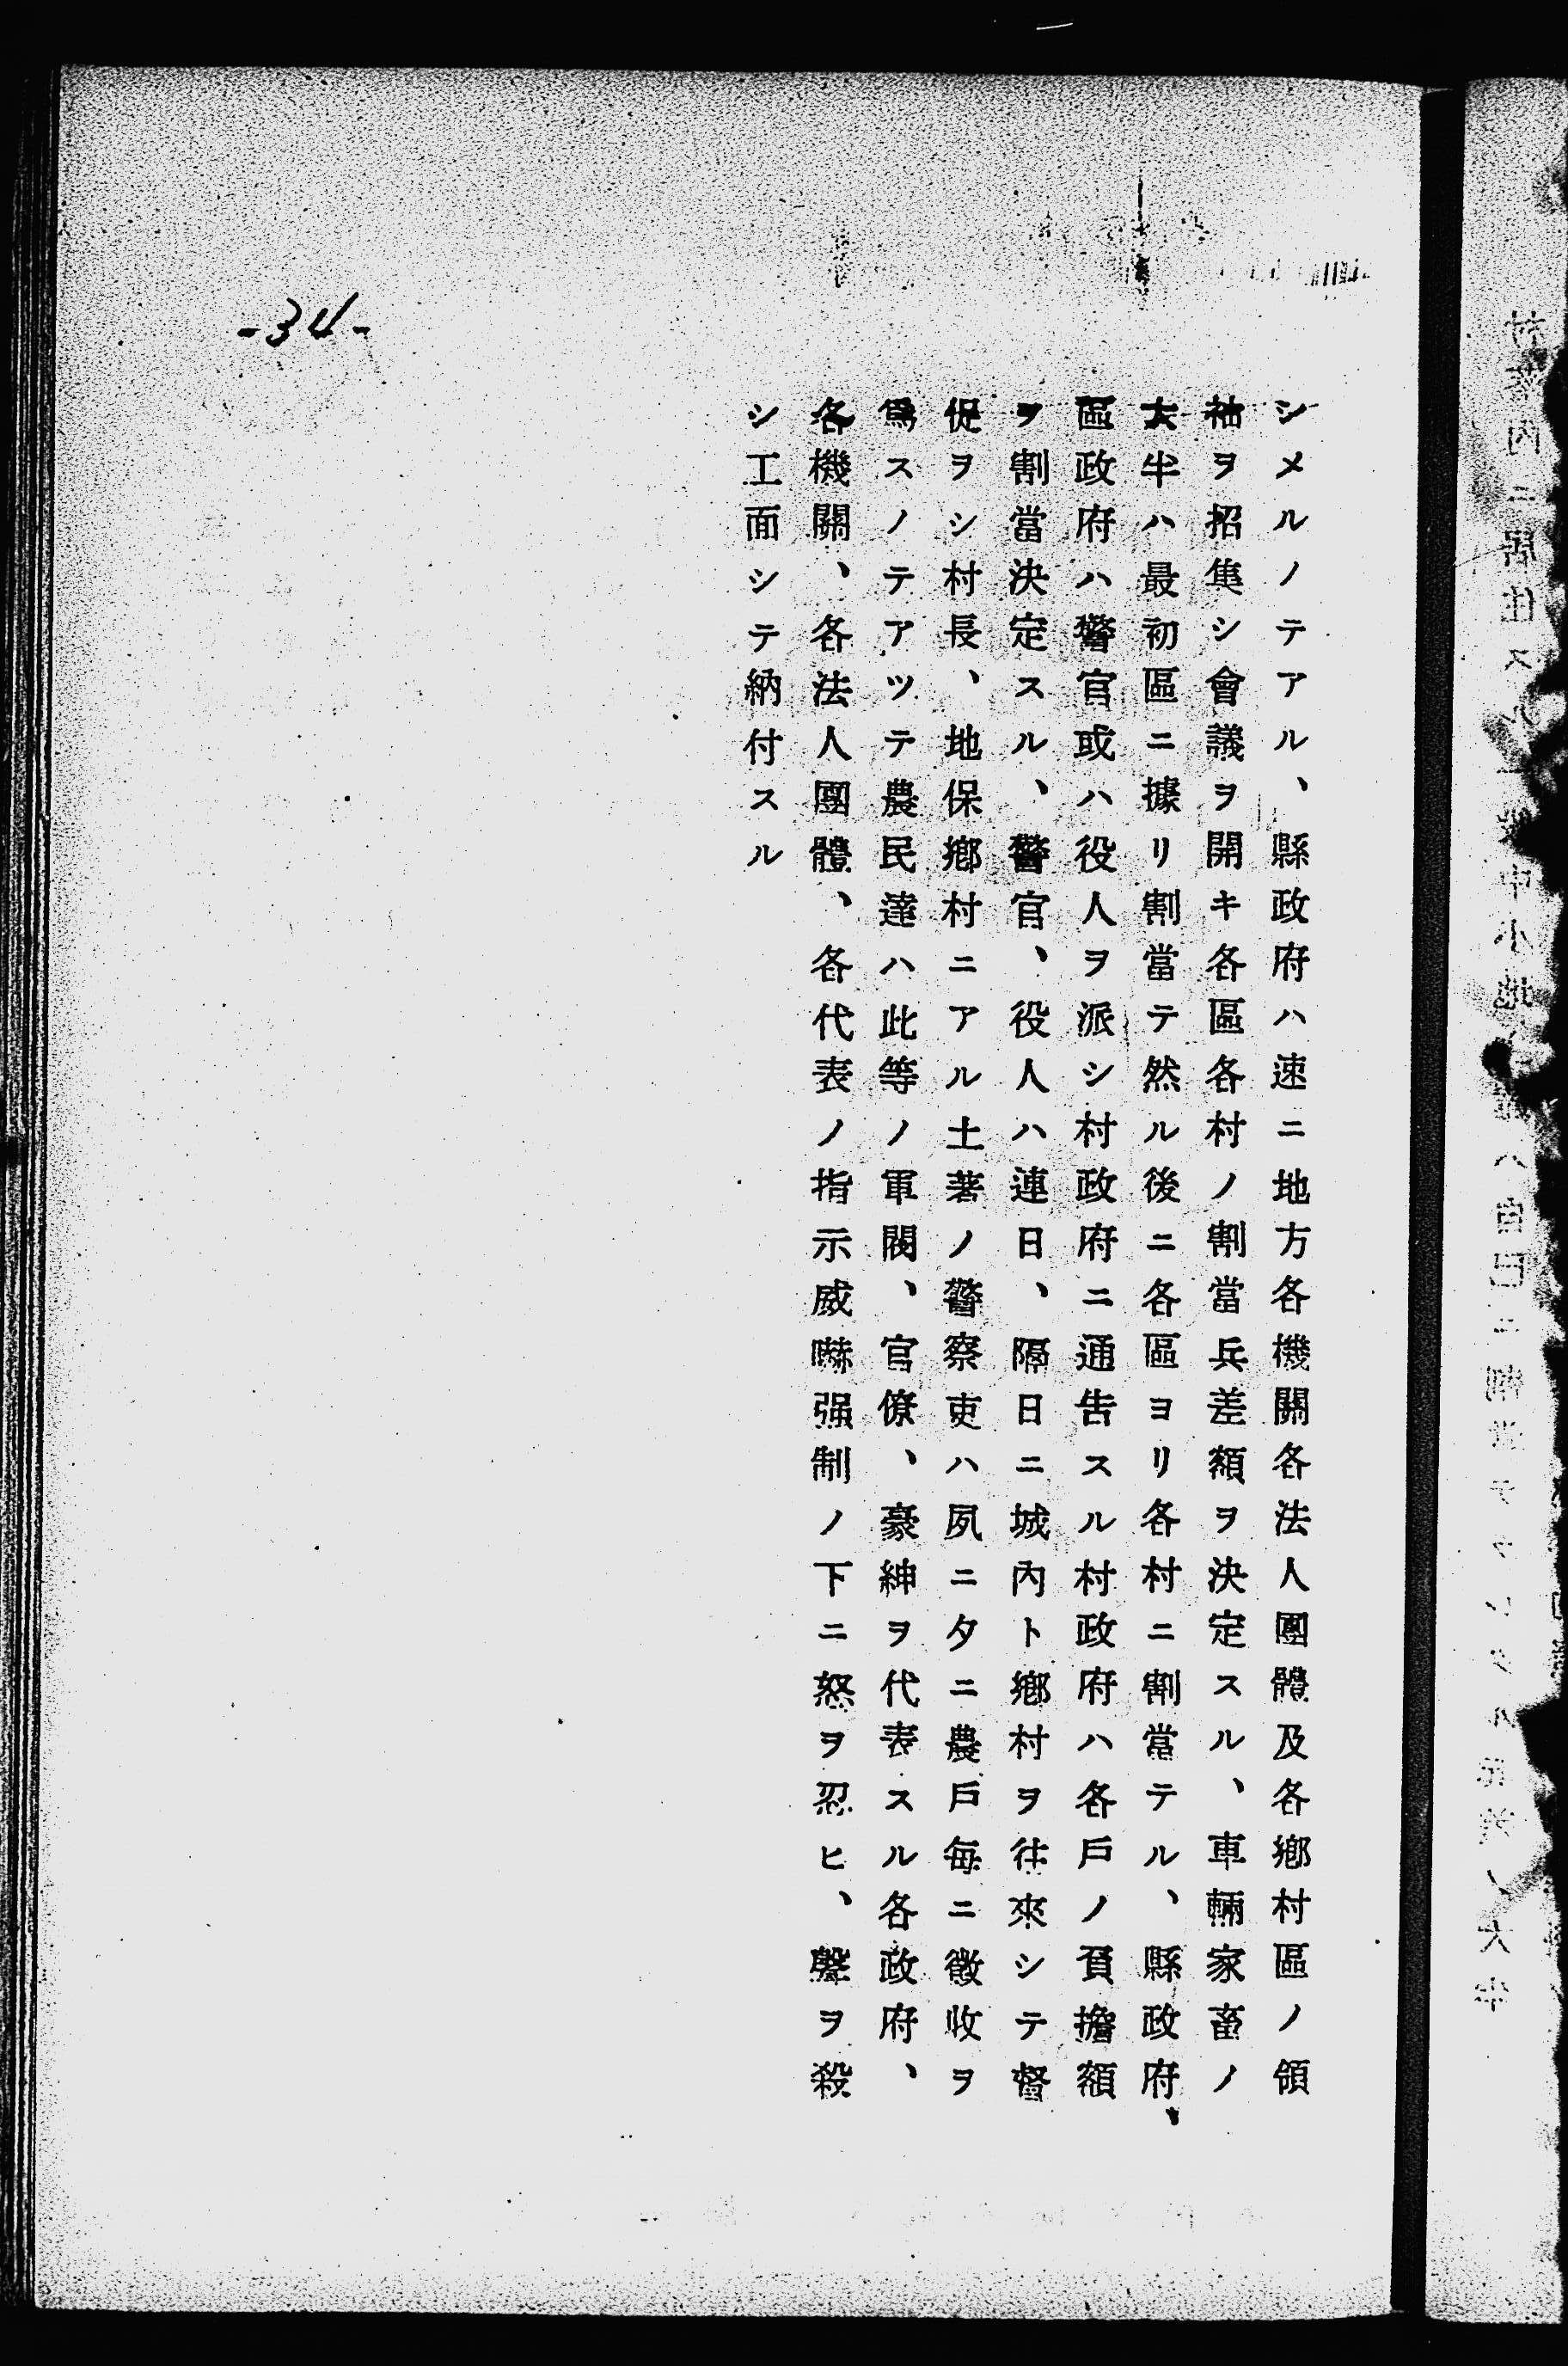 シメルノテアル、縣政府ハ速ニ地方各機關各法人團體及各鄕村區ノ領
袖ヲ招集シ會議ヲ開キ各區各村ノ割當兵差額ヲ決定スル、車輛家畜ノ
大半ハ最初區ニ據リ割當テ然ル後ニ各區ヨリ各村ニ割當テル、縣政府、
區政府ハ警官或ハ役人ヲ派シ村政府ニ通告スル村政府ハ各戶ノ負擔額
ヲ割當決定スル、警官、役人ハ連日、隔日ニ城內ト鄕村ヲ往來シテ督
促ヲシ村長、地保鄕村ニアル土著ノ警察吏ハ夙ニタニ農戶每ニ徵收ヲ
爲スノテアツテ農民達ハ此等ノ軍閥、官僚、豪紳ヲ代表スル各政府、
各機關、各法人團體、各代表ノ指示威嚇强制ノ下ニ怒ヲ忍ヒ、聲ヲ殺
シ工面シテ納付スル
-34-